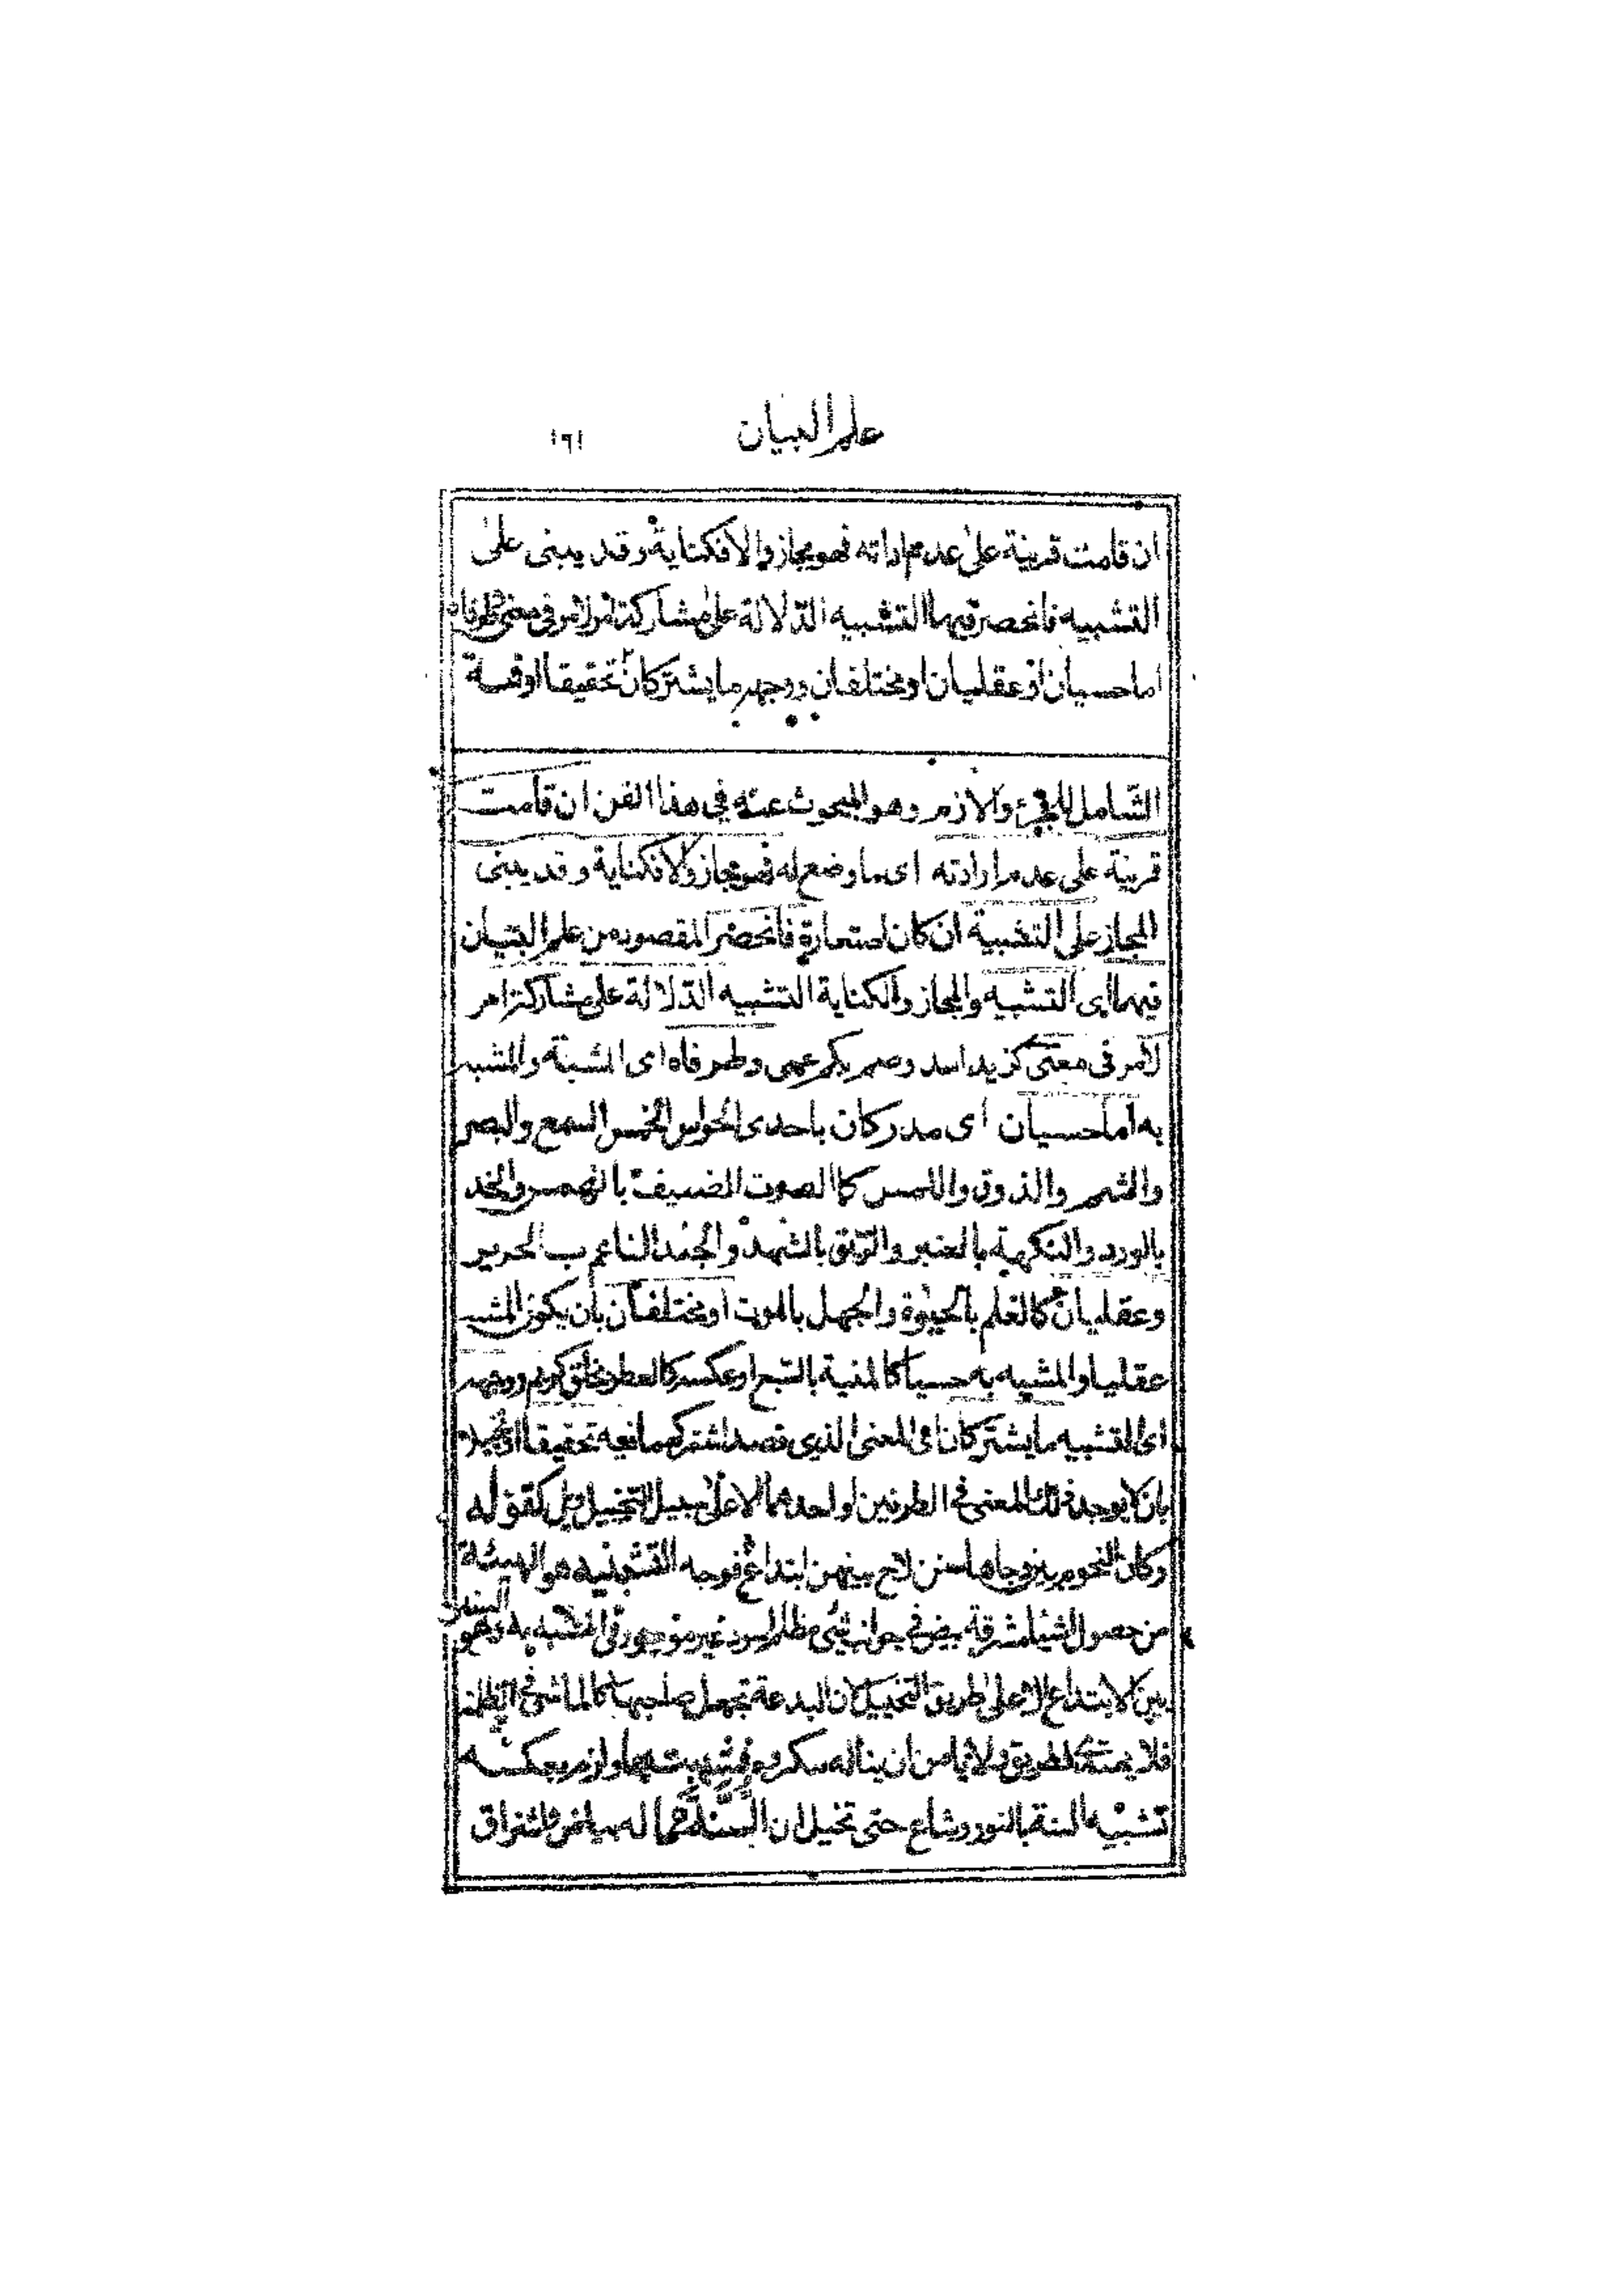 علم البيان ١٦١
ان قامت قرينة على عدم ارادته فهو مجاز والا فكناية وقد يبنى على
التشبيه فانحصر فيهما التشبيه الدلالة على مشاركة امر لامر في معنى وطرفاه
اما حسيان او عقليان او مختلفان ووجهه ما يشتركان تحقيقا او
الشامل للجزء واللازم وهو المبحوث عنه في هذا الفن ان قامت
قرينة على عدم ارادته اى ما وضع له فهو مجاز والا فكناية وقد يبنى
المجاز على التشبية ان كان استعارة فانحصر المقصود من علم البيان
فيهما اى التشبيه والمجاز والكناية التشبيه الدلالة على مشاركة امر
لامر فى معنى كزيد اسد وصم بكم عمى وطرفاه اى المشبه والمشبه
به اما حسيان اى مدركان باحدى الحواس الخمس السمع والبصر
والشم والذوق واللمس كالصوت الضعيف بالهمس والخد
بالورد والنكهة بالعنبر والريق بالشهد والجلد الناعم بالحرير
وعقليان كالعلم بالحيوة والجهل بالموت او مختلفان بان يكون المشبه
عقليا والمشبه به حسيا كالمنية بالسبع او عكسه كالعطر بخلق كريم ووجهه
اى التشبيه ما يشتركان اى المعنى الذى قصد اشتراكهما فيه تحقيقا او تخيلا
بان لا يوجد ذلك المعنى في الطرفين او احدهما الا على سبيل التخييل كقوله
وكان النجوم بين دجاها سنن لاح بينهن ابتداع فوجه التشبيه هو الهيئة
من حصول اشياء مشرقة بيض في جوانب شئ مظلم اسود غير موجود فى المشبه به وهو السنن
بين الابتداع الا على طريق التخييل لان البدعة تجعل صاحبها كالماشى في الظلمة
فلا يهتدى للطريق ولا يامن ان يناله مكروه فشبهت بها ولزم بعكسه
تشبيه السنة بالنور وشاع حتى تخيل ان السنة مما له بياض واشراق